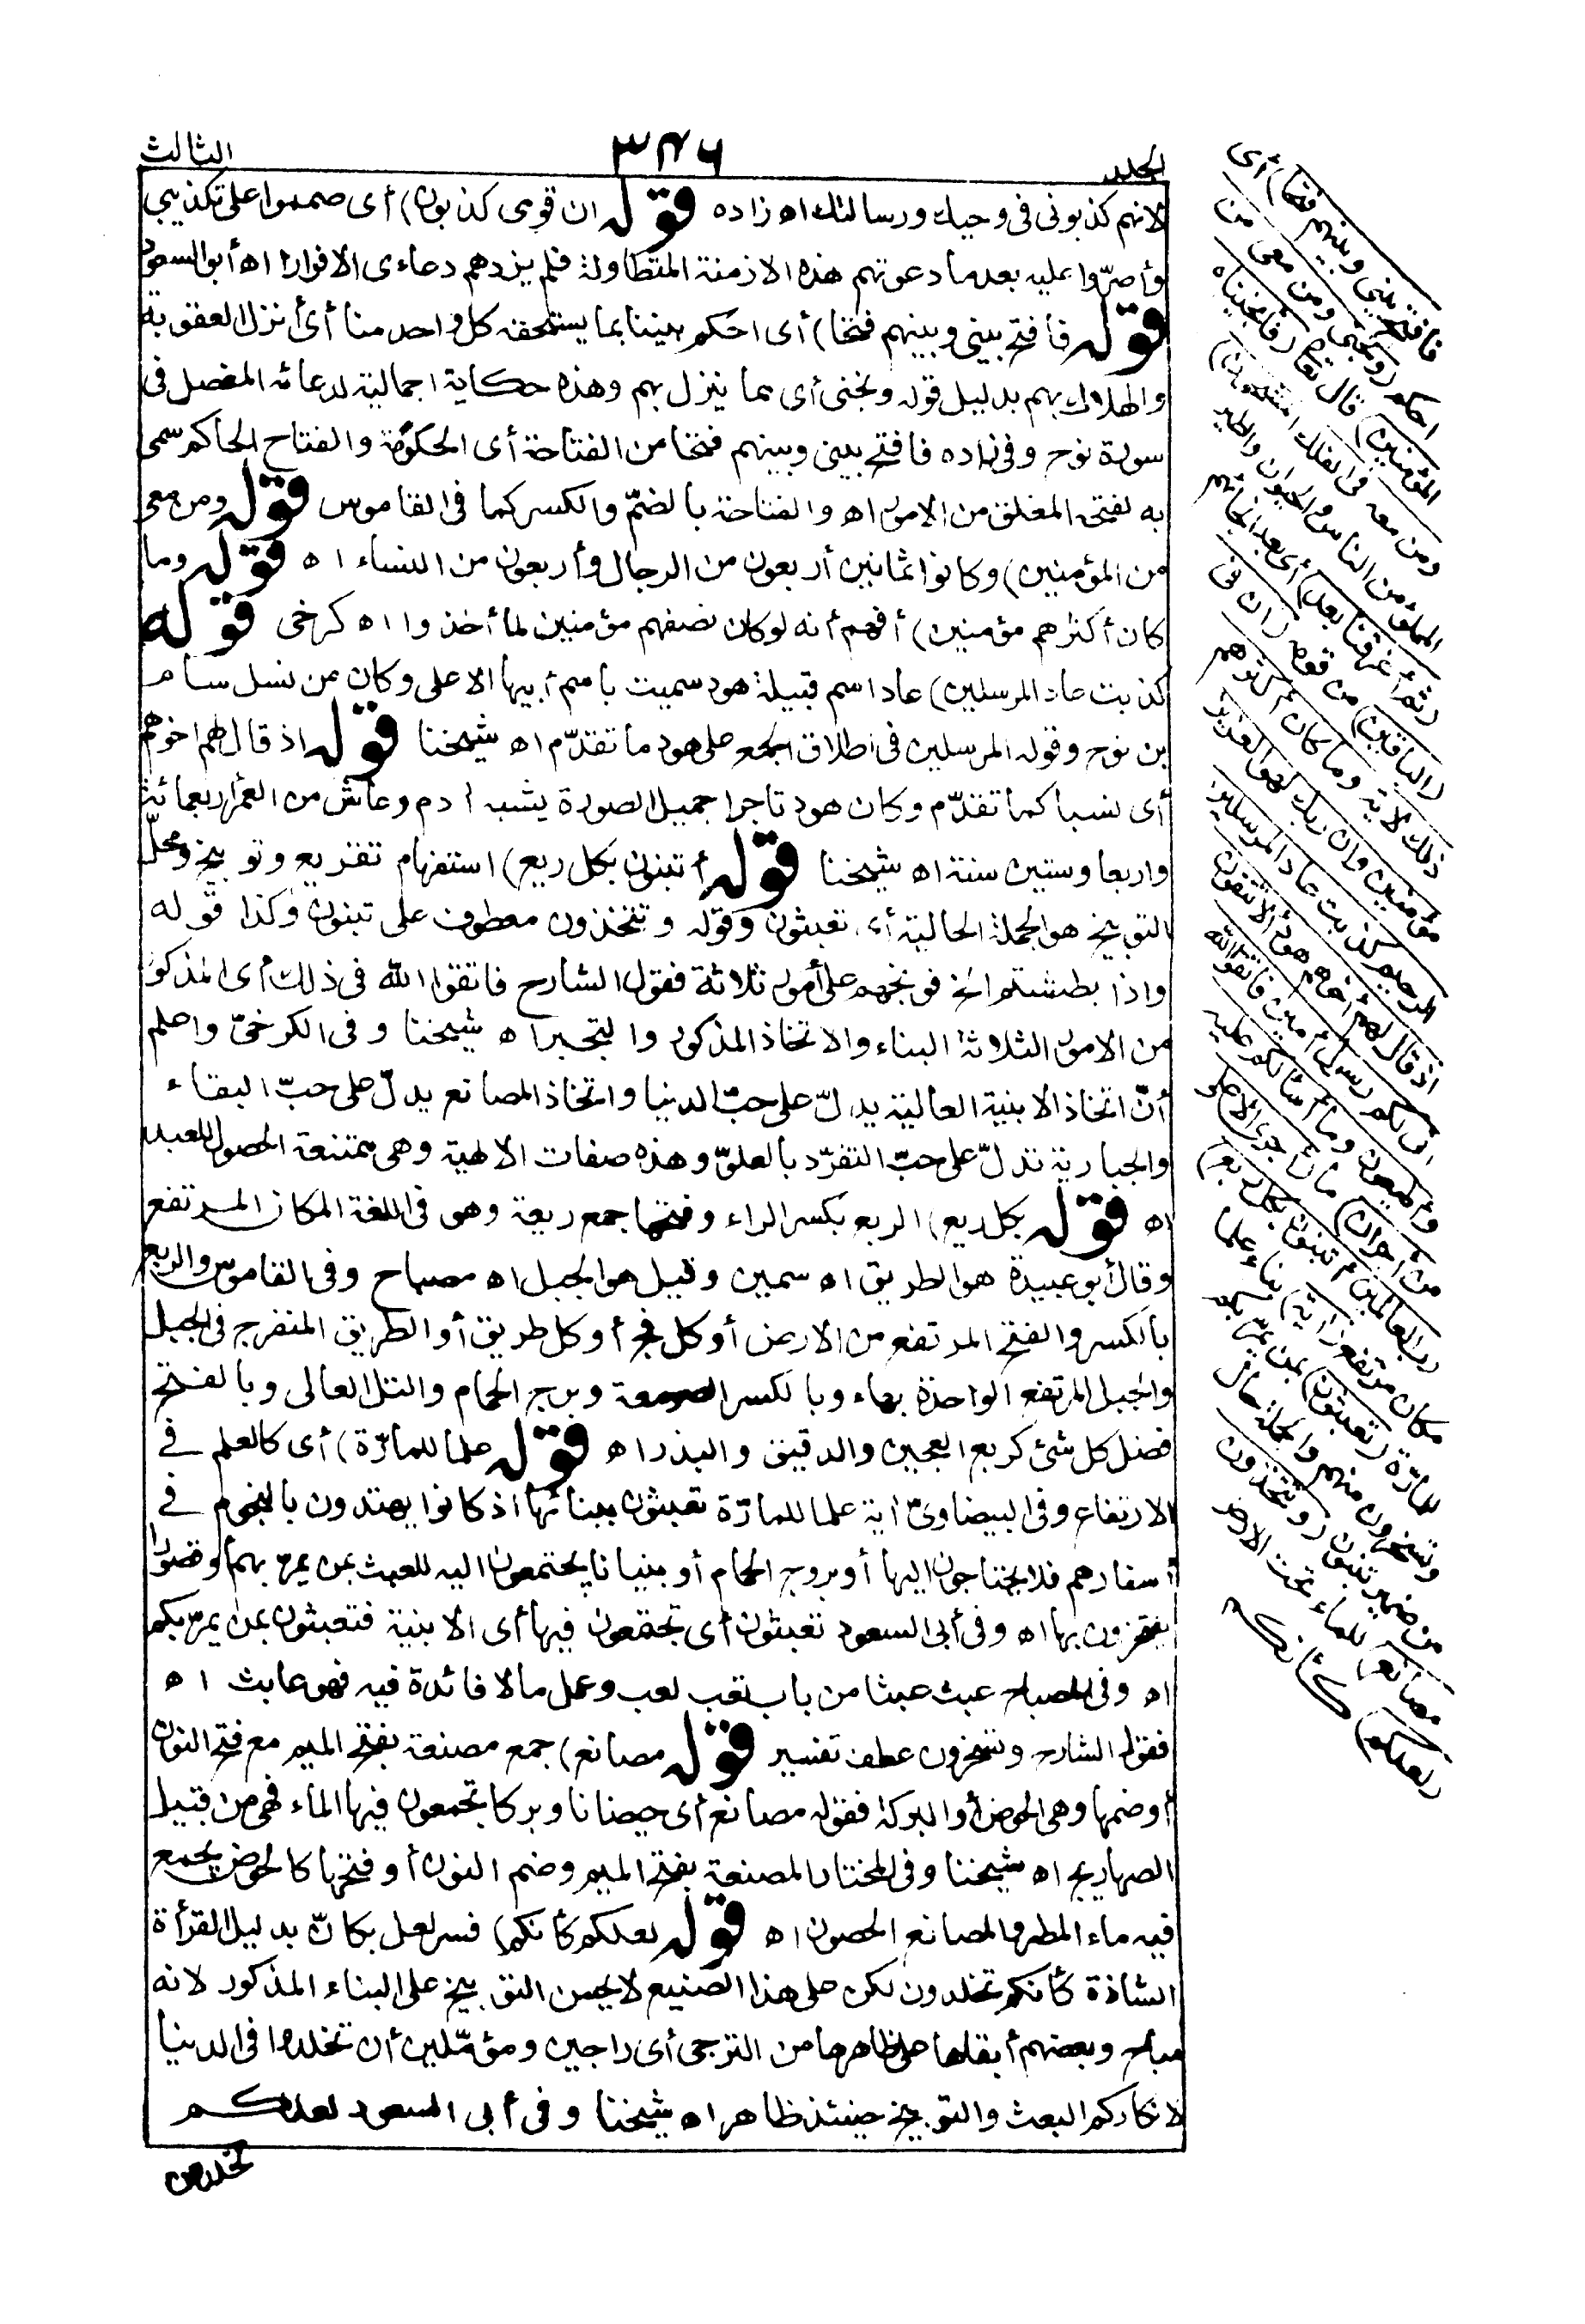 الجلد
٣٤٦
الثالث
لانهم كذبونى فى وحيك ورسالتك اه زاده قوله ان قومى كذبون) أى صمموا على تكذيبى
وأصرّوا عليه بعد ما دعوتهم هذه الازمنة المتطاولة فلم يزدهم دعاءى الا فرارا اه أبو السعود
قوله فافتح بينى وبينهم فتحا) أى احكم بيننا بما يستحقه كل واحد منا أى أنزل العقوبة
والهلاك بهم بدليل قوله ونجنى أى مما ينزل بهم وهذه حكاية اجمالية لدعائه المفصل فى
سورة نوح وفى زاده فافتح بينى وبينهم فتحا من الفتاحة أى الحكومة والفتاح الحاكم سمى
به لفتحه المغلق من الامور اه والفتاحة بالضمّ والكسر كما فى القاموس قوله ومن معى
من المؤمنين) وكانوا ثمانين أربعون من الرجال وأربعون من النساء اه قوله وما
كان أكثرهم مؤمنين) أفهم أنه لو كان نصفهم مؤمنين لما أخذوا اه كرخى قوله
كذبت عاد المرسلين) عاد اسم قبيلة هود سميت باسم أبيها الاعلى وكان من نسل سام
بن نوح وقوله المرسلين فى اطلاق الجمع على هود ما تقدّم اه شيخنا قوله اذ قال لهم اخوهم
أى نسبا كما تقدّم وكان هود تاجرا جميل الصورة يشبه ادم وعاش من العمر أربعمائة
واربعا وستين سنة اه شيخنا قوله أتبنون بكل ريع) استفهام تقريع وتوبيخ ومحلّ
التوبيخ هو الجملة الحالية أى تعبثون وقوله وتتخذون معطوف على تبنون وكذا قوله
واذا بطشتم الخ فوبخهم على أمور ثلاثة فقول الشارح فاتقوا الله فى ذلك أى المذكور
من الامور الثلاثة البناء والاتخاذ المذكور والتجبر اه شيخنا وفى الكرخىّ واعلم
أنّ اتخاذ الابنية العالية يدلّ على حبّ الدنيا واتخاذ المصانع يدلّ على حبّ البقاء
والجبارية تدلّ على حبّ التفرّد بالعلوّ وهذه صفات الالهية وهى ممتنعة الحصول للعبد
اه قوله بكل ريع) الريع بكسر الراء وفتحها جمع ريعة وهو فى اللغة المكان المرتفع
وقال أبو عبيدة هو الطريق اه سمين وقيل هو الجبل اه مصباح وفى القاموس والريع
بالكسر والفتح المرتفع من الارض أو كل فج أو كل طريق أو الطريق المنفرج فى الجبل
والجبل المرتفع الواحدة بهاء وبالكسر الصومعة وبرج الحمام والتل العالى وبالفتح
فضل كل شئ كريع العجين والدقيق والبذر اه قوله علما للمارّة) أى كالعلم فى
الارتفاع وفى البيضاوىّ اية علما للمارّة تعبثون ببنائها اذ كانوا يهتدون بالنجوم فى
أسفارهم فلا يحتاجون اليها أو بروج الحمام أو بنيانا يجتمعون اليه للعبث بمن يمرّ بهم أو قصورا
يفتخرون بها اه وفى أبى السعود تعبثون أى تجتمعون فيها أى الابنية فتعبثون بمن يمرّ بكم
اه وفى المصباح عبث عبثا من باب تعب لعب وعمل ما لا فائدة فيه فهو عابث اه
فقول الشارح وتسخرون عطف تفسير قوله مصانع) جمع مصنعة بفتح الميم مع فتح النون
أو ضمها وهى الحوض أو البركة فقوله مصانع أى حيضانا وبركا تجمعون فيها الماء فهى من قبيل
الصهاريج اه شيخنا وفى المختار المصنعة بفتح الميم وضم النون أو فتحها كالحوض يجمع
فيه ماء المطر والمصانع الحصون اه قوله لعلكم كأنكم) فسر لعل بكأنّ بدليل القرأة
الشاذة كأنكم تخلدون لكن على هذا الصنيع لا يحسن التوبيخ على البناء المذكور لانه
مباح وبعضهم أبقاها على ظاهرها من الترجى أى راجين ومؤمّلين أن تخلدوا فى الدنيا
لانكاركم البعث والتوبيخ حينئذ ظاهر اه شيخنا وفى أبى السعود لعلكم
تخلدون
فافتح بينى وبينهم فتحا) أى
احكم (ونجنى ومن معى من
المؤمنين) قال تعالى (فأنجيناه
ومن معه فى الفلك المشحون)
المملوء من الناس والحيوان والطير
(ثم أغرقنا بعد) أى بعد انجائهم
(الباقين) من قومه (ان فى
ذلك لاية وما كان أكثرهم
مؤمنين وان ربك لهو العزيز
الرحيم كذبت عاد المرسلين
اذ قال لهم أخوهم هود ألا تتقون
انى لكم رسول أمين فاتقوا الله
وأطيعون وما أسألكم عليه
من أجر ان) ما (أجرى الا على
رب العالمين أتبنون بكل ريع)
مكان مرتفع (اية) بناء علما
للمارّة (تعبثون) بمن يمر بكم
وتسخرون منهم والجملة حال
من ضمير تبنون (وتتخذون
مصانع) للماء تحت الارض
(لعلكم) كأنكم